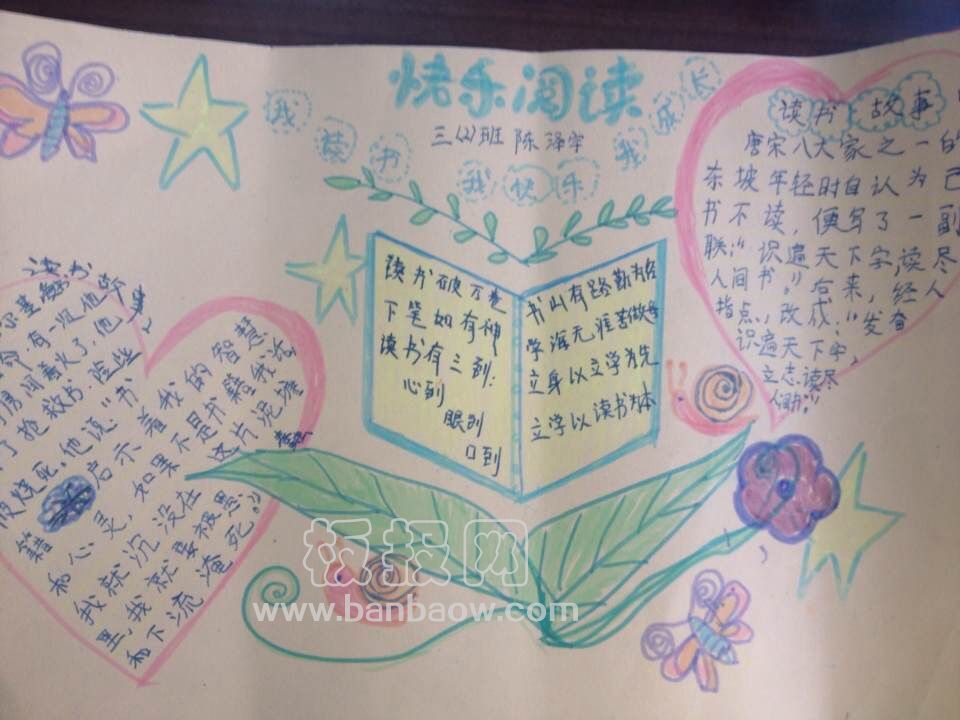 快乐阅读
三(2)班 陈泽宇
我读书
我快乐
我成长
读书故事
唐宋八大家之一的
东坡年轻时自认为已
书不读，便写了一副
联：“识遍天下字，读尽
人间书。”后来，经人
指点，改成：“发奋
识遍天下字，
立志读尽
读书破万卷
下笔如有神
读书有三到：
心到
眼到
口到
书山有路勤为径
学海无涯苦做舟
立身以立学为先
立学以读书为本
读书
有一次他
房间着火了，他
了抢救书，险些
被烧死，他说“书
籍启示着我的智慧
和心灵，如果不是书籍我活
我就沉没在这片泥潭
里，我就要被愚蠢
和下流淹死。”
板报网
www.banbaow.com